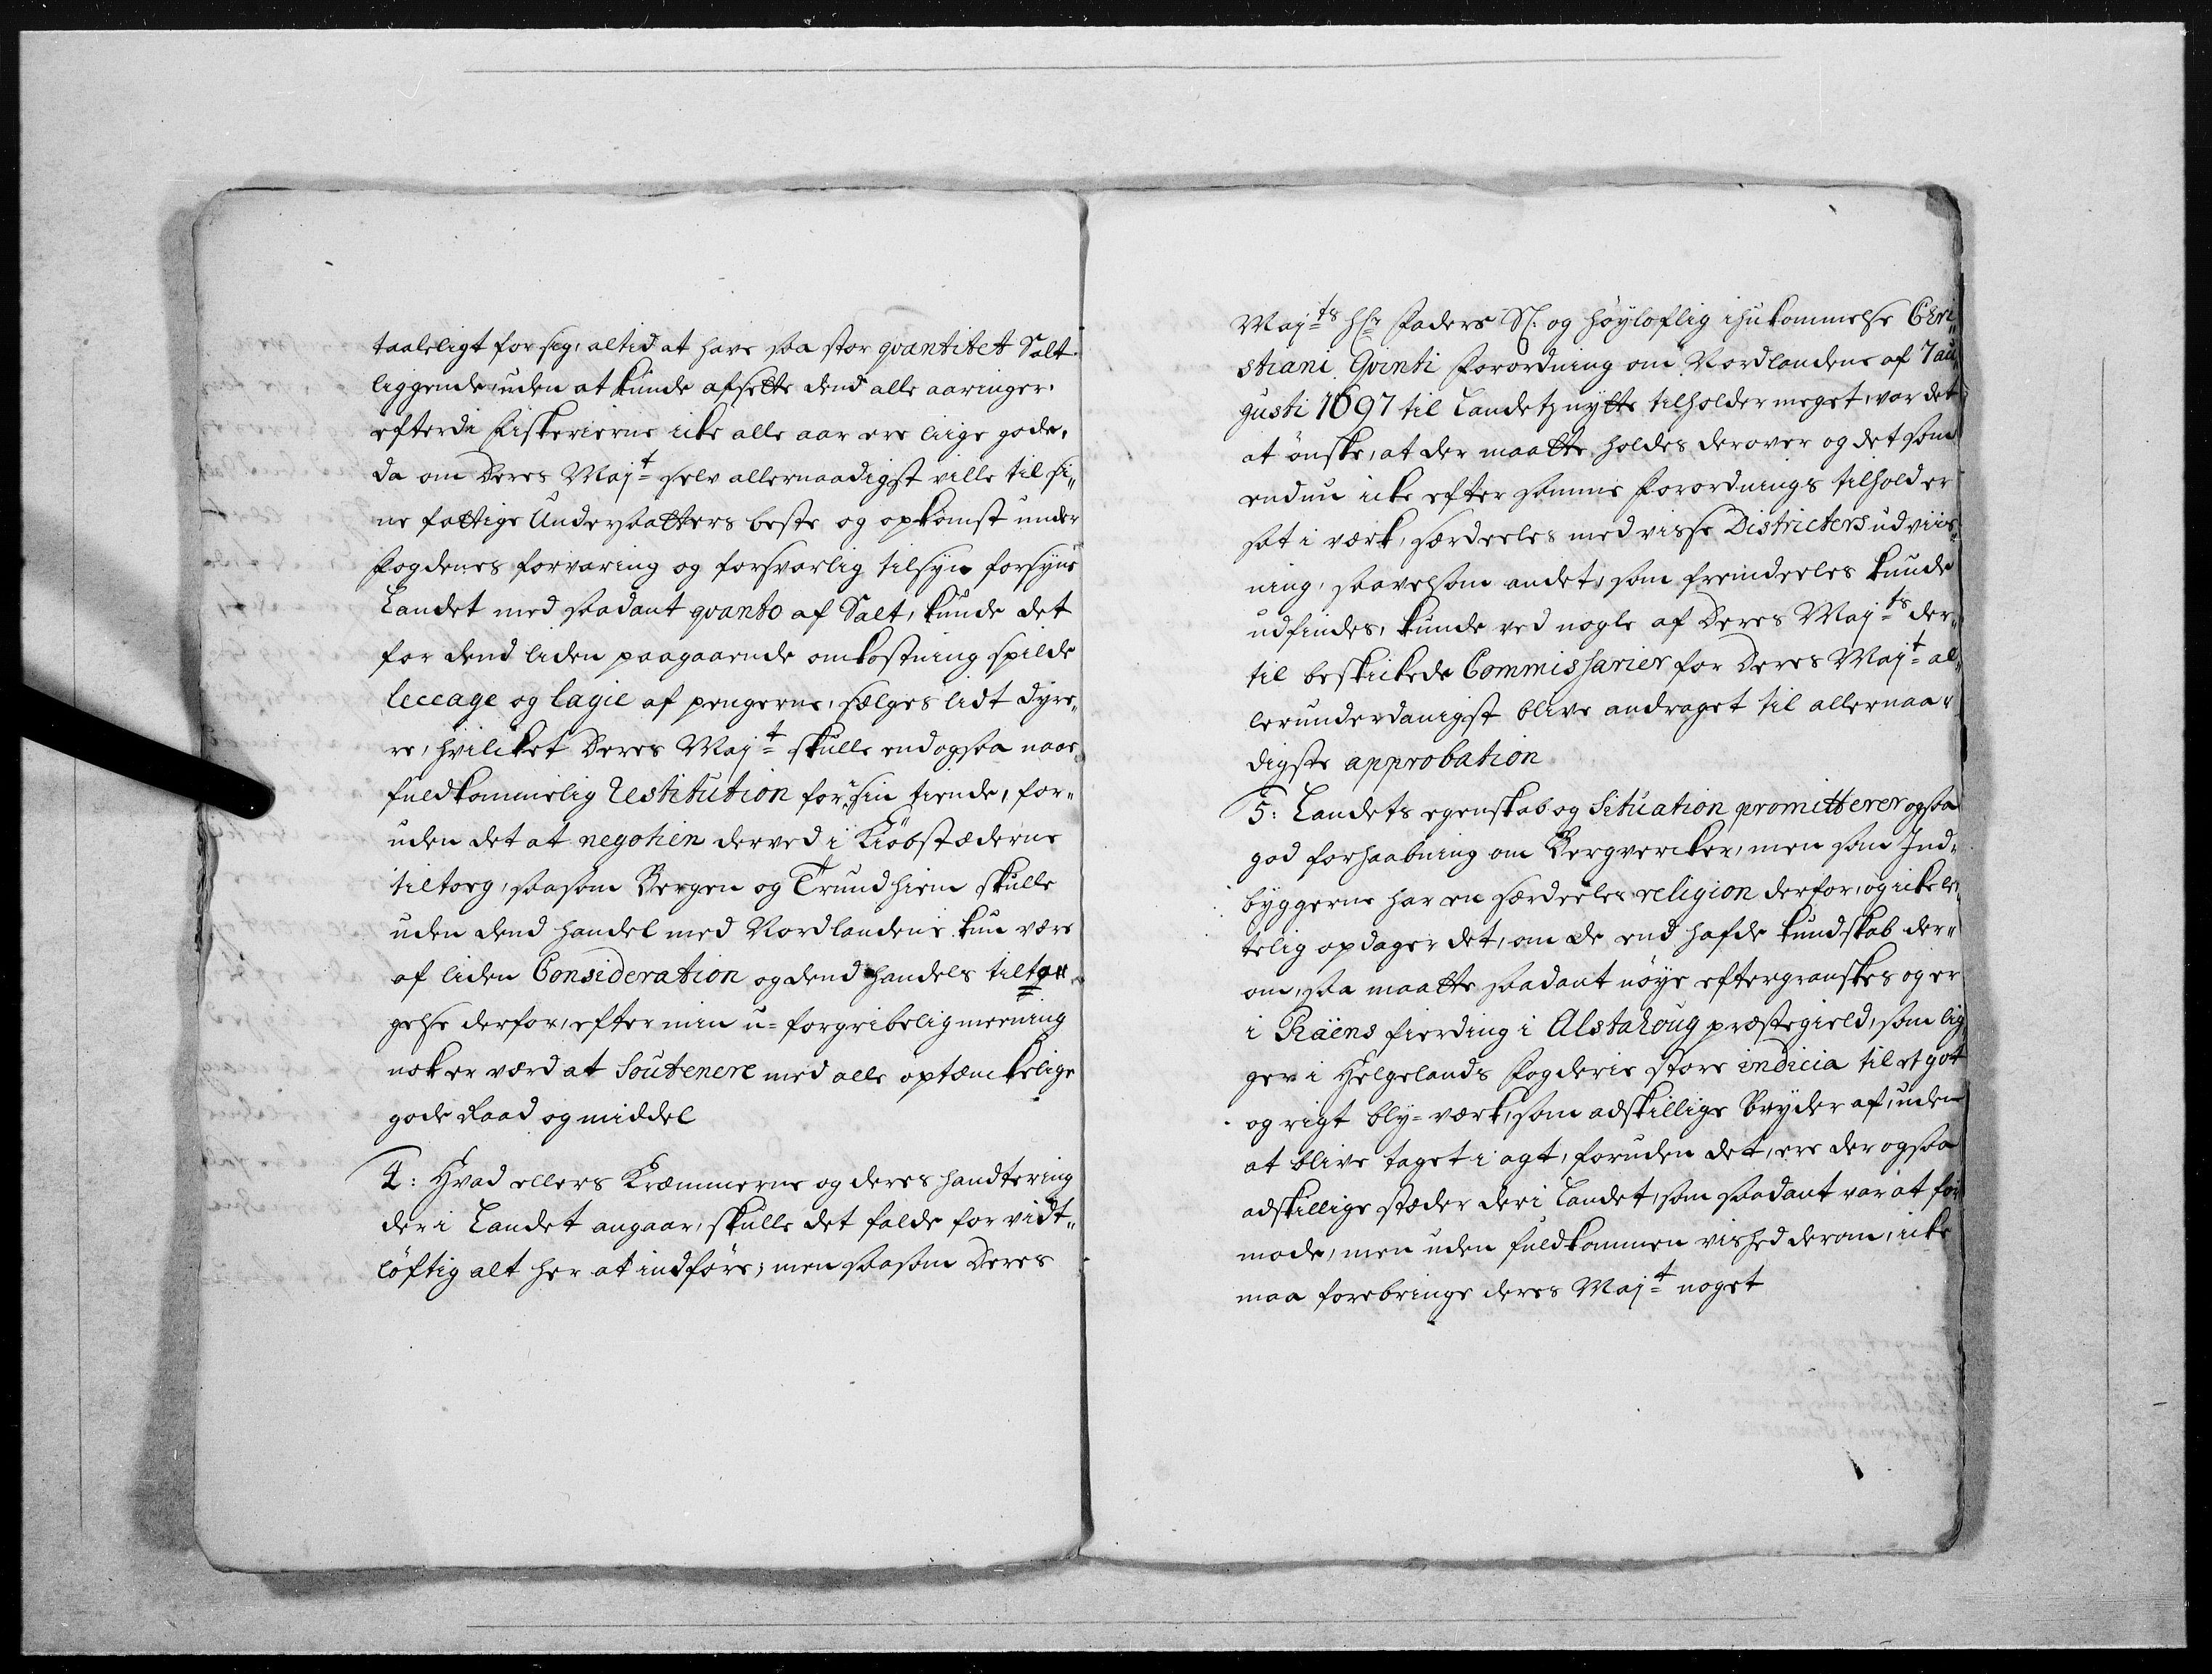 taaleligt for sig, altid at have saa stor qvantitet Salt
liggende, uden at kunde afsette dend alle aaringer.
efterdi Fiskerierne icke alle aar ere liige gode,
da om Deres Maj:t selv allernaadigst ville til si„
ne fattige Undersaatters beste og opkomst under
Fogdernes forvaring og forsvarlig tilsyn forsyne
Landet med saadant qvanto af Salt, kunde det
for dend liden paagaaende omkostning spilde
leccage og lagie af pengerne, sælges lidt dyre„
re, hvilcket Deres Maj:t skulle endogsaa naae
fuldkommelig Restitution for sin tiende, for„
uden det at negotien derved i Kiöbstæderne
tiltoeg, saasom Bergen og Trundhiem skulle
uden dend handel med Nordlandene kun være
af liden Consideration og dend handels tilta„
gelse derfor, efter min u=forgribelig meening
nok er værd at Soutenere med alle optænckelige
gode Raad og middel
4: Hvad ellers Kræmmerne og deres handtering
der i Landet angaar, skulle det falde for vidt„
löftig alt her at indföre; men saasom Deres
Maj:ts Hr Faders Sl: og höyloflig ihukommelse Chri„
stiani Qvinti Forordning om Nordlandene af 7 au„
gusti 1697 til Landetz nytte tilholder meget, var det
at önske, at der maatte holdes derover og det som
endnu icke efter samme Forordnings tilhold er
sat i værk, særdeeles med visse Districters udviis„
ning, saavelsom andet, som fremdeeles kunde
udfindes, kunde ved nogle af Deres Maj:ts der„
til beskickede Commissarier for Deres Maj:t al„
lerunderdanigst blive andraget til allernaa„
digste approbation
5: Landets egenskab og Situation promitterer ogsaa
god forhaabning om Bergvercker, men som Ind„
byggerne har en særdeeles religion derfor, og icke le„
telig opdager det, om de end hafde kundskab der„
om, saa maatte saadant nöye eftergranskes og er
i Raens fierding i Alstahoug præstegield, som lig„
ger i Helgelands Fogderie store indicia til et got
og rigt bly=værk, som adskillige bryder af, uden
at blive taget i agt, foruden det, ere der ogsaa
adskillige stæder der i Landet, som saadant var at for
mode, men uden fuldkommen vished derom, icke
maa forebringe deres Maj:t noget